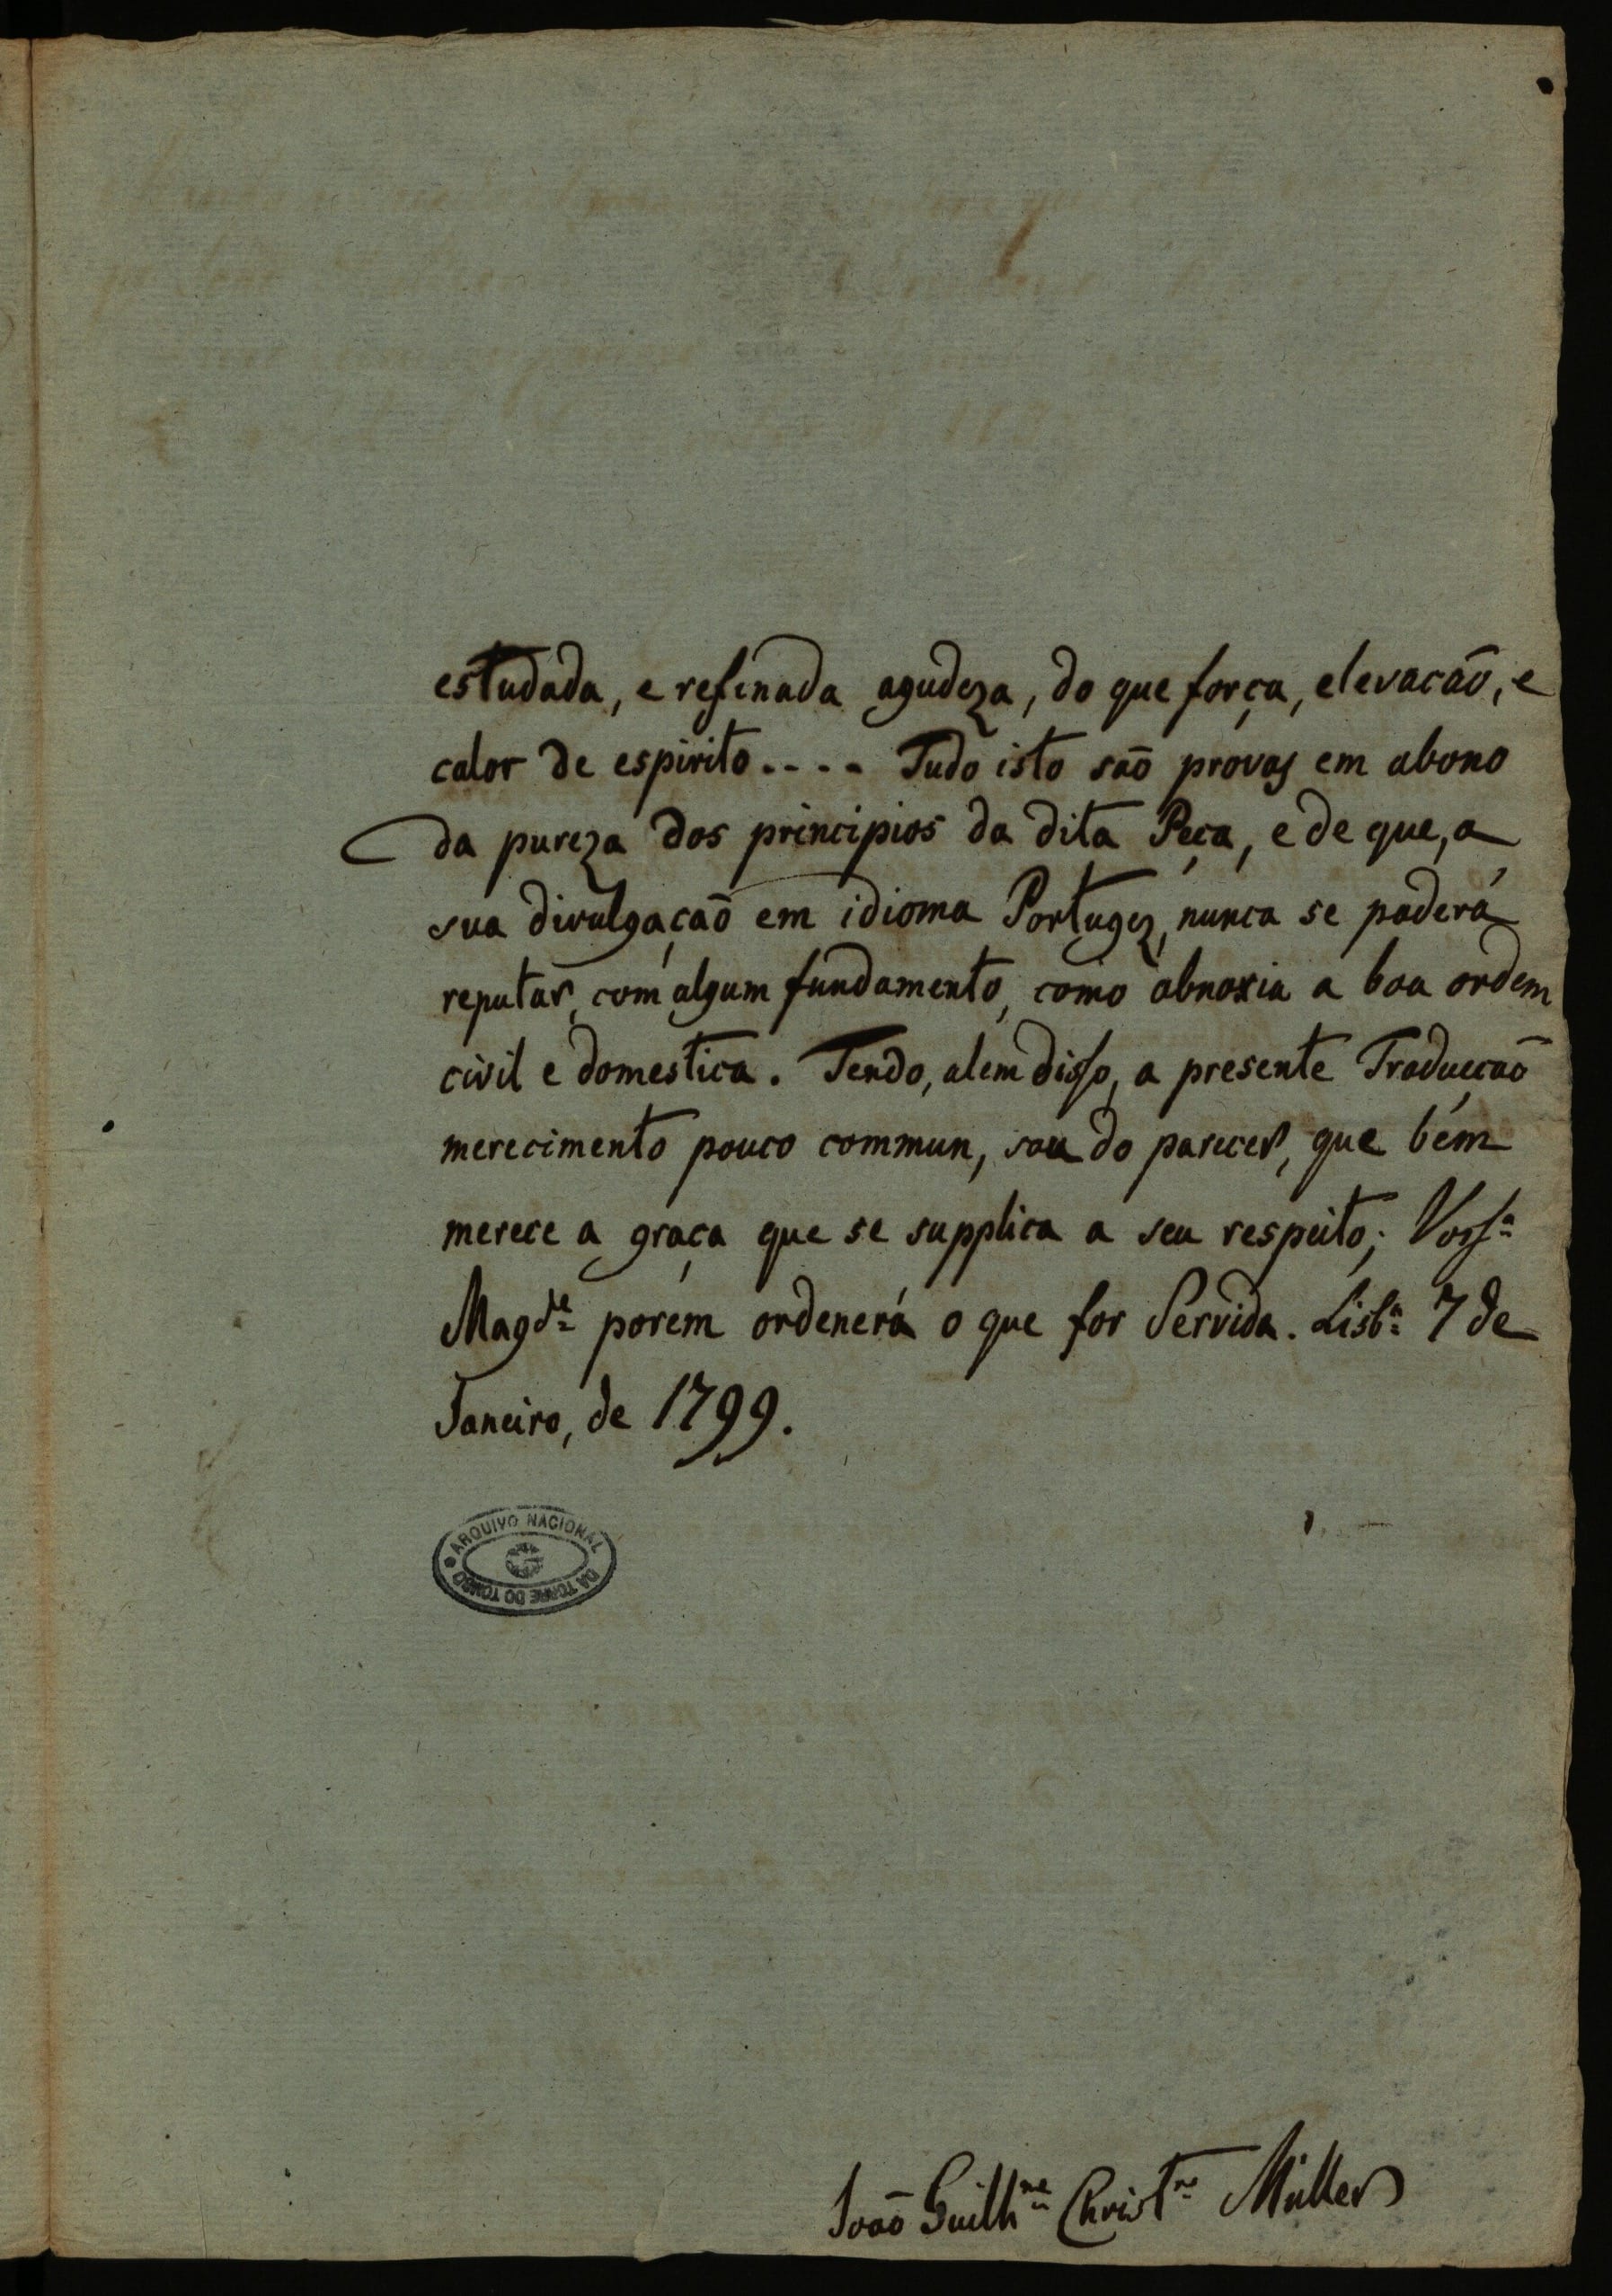 estudada, e refinada agudeza, do que força, elevacaõ, e
calor de espirito.... Tudo isto saõ provas em abono
da pureza dos principios da dita Peça, e de que, a
sua divulgaçaõ em idioma Portugez, nunca se poderá
reputar, com algum fundamento, como obnoxia a boa ordem
civil e domestica. Tendo, alem disso, a presente Traducçaõ
merecimento pouco commun, sou do parecer, que bém
merece a graça que se supplica a seu respeito; Vossª
Magde porém ordenerá o que for Servida. Lisbª 7 de
Janeiro, de 1799.
ARQUIVO NACIONAL DA TORRE DO TOMBO
Joaõ Guilhme Christno Müller